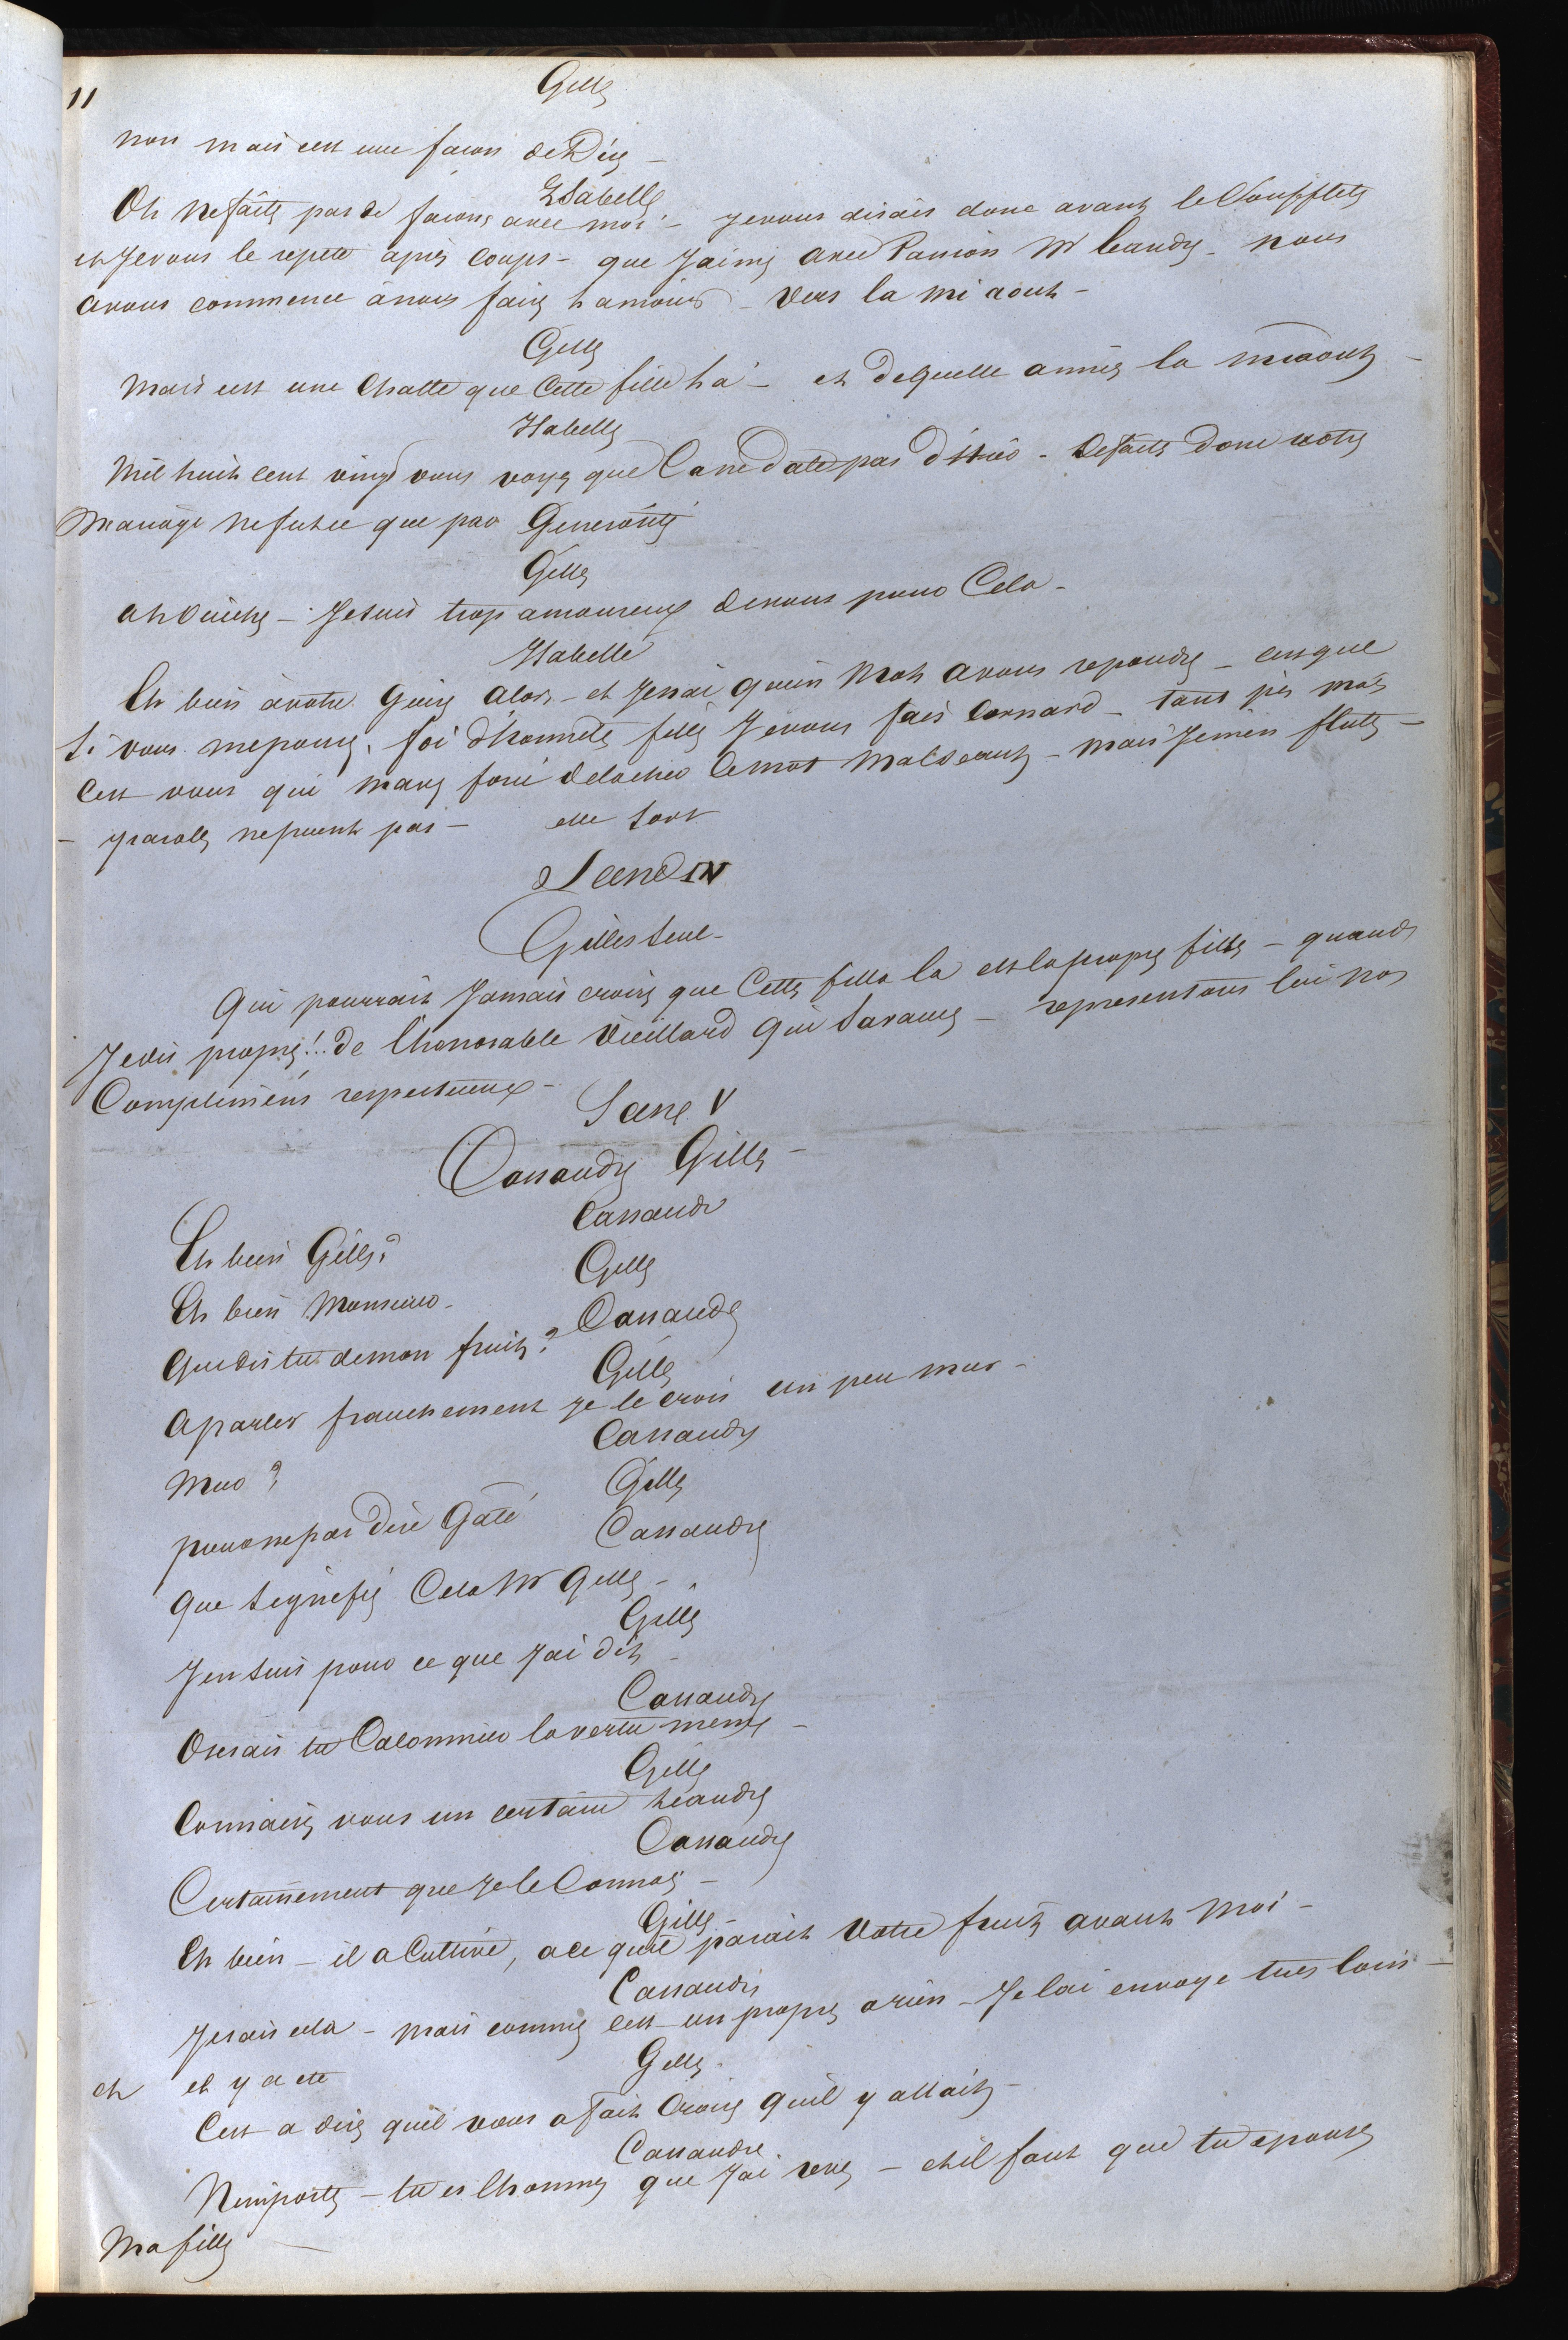 11
Gille
non mais cest une facon de Dire -
Isabelle
Oh ne faite pas de facons avec moi - je vous disais donc avant le Soufflets
et Je vous le repete apres coups - que J'aime avec Passion Mr Leandre - nous
avons commencé a nous faire l amour - vers la mi aout -
Gille
Mais cest une Chatte que Cette fille la - et de quelle année la miaout -
Isabelle
Mil huit cent vingt vous voyez que Ca ne date pas d'hier - Defaites donc votre
Mariage ne futce que par Generosité
Gille
ah ouiche - Je suis trop amoureux de vous pour Cela -
Isabelle
Eh bien a votre Guise alors - et Je nai quun Mot a vous repondre - cest que
Si vous mepousez, foi d'honnete fille Je vous fais Cornard - tant pis mais
Cest vous qui mavez forcé de lacher le mot malseant - mais Je men flatte -
- parole ne puent pas - elle sort
Scene IV
Gilles Seul -
Qui pourrait Jamais croire que Cette fille la est la propre fille - quand
Je dis propre !.. de l'honorable Vieillard qui Savance - representons lui nos
Complimens respectueux -
Scene V
Cassandre Gille -
Cassandre
Eh bien Gille ?
Gille
Eh bien Monsieur -
Cassandre
Que dis tu de mon fruit ?
Gille
A parler franchement je le crois un peu mur -
Cassandre
Mur ?
Gille
pour ne pas dire Gâté
Cassandre
Que Signifie Cela Mr Gille -
Gille
J'en suis pour ce que J'ai dit -
Cassandre
Oserais tu Calomnier la vertu meme -
Gille
Connaissez vous un certain Leandre
Cassandre
Certainement que Je le Connais -
Gille -
Eh bien - il a Cultivé, a ce quil parait Votre fruit avant Moi -
Cassandre
Je sais cela - mais comme cest un propre a rien - Je lai envoye tres loin -
et il y a ete
Gille -
Cest a dire quil vous a fait Croire quil y allait -
Cassandre
Nimporte - tu es lhomme que J'ai revé - et il faut que tu epouse
Ma fille -